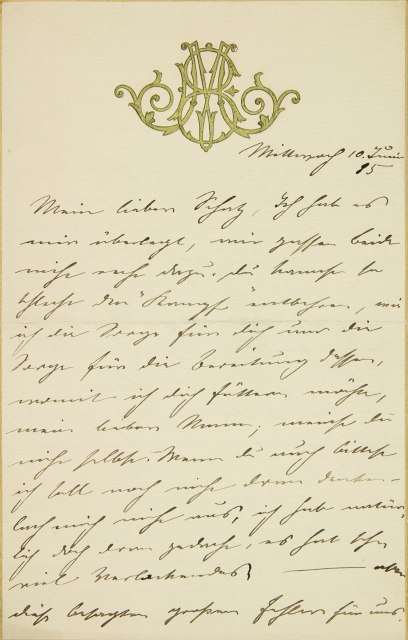 Mittwoch 10. Juni
95
Mein lieber Schatz, Ich hab es
mir überlegt, wir passen beide
nicht recht dazu. Du kannst so
schlecht den "Kampf" entbehren, wie
ich die Sorge für dich und die
Sorge für die Bereitung dessen,
womit ich dich füttern möchte,
mein lieber Mann; meinst du
nicht selbst. Wenn du auch bittest
ich soll noch nicht dran denken
lach mich nicht aus, ich hab natür-
lich doch dran gedacht, es hat sehr
viel Verlockendes, — aber
dies besagten großen Fehler für uns.